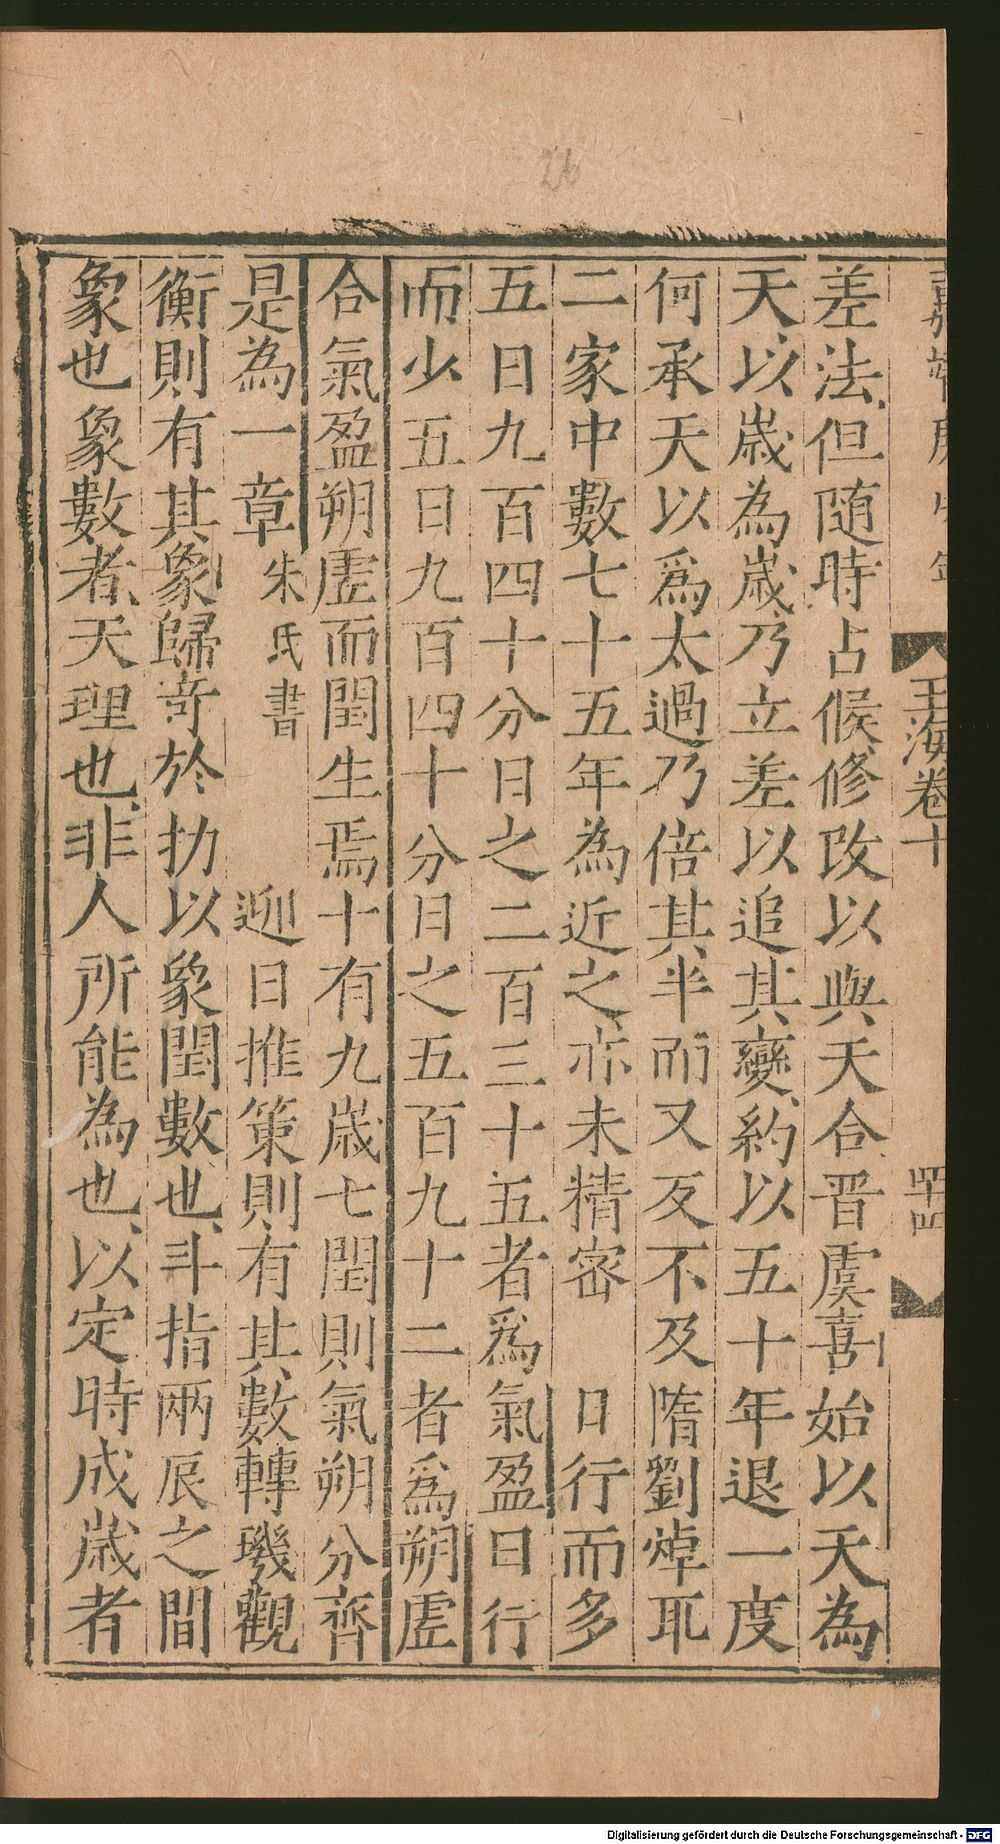 26
差法但隨時占候修改以與天合晋虞喜始以天為
天以歲為歲乃立差以追其變約以五十年退一度
何承天以爲太過乃倍其半而又反不及隋劉焯取
二家中數七十五年為近之亦未精密　日行而多
五日九百四十分日之二百三十五者爲氣盈日行
而少五日九百四十分日之五百九十二者爲朔虛
合氣盈朔虛而閏生焉十有九歲七閏則氣朔分齊
是為一章朱氏書　迎日推策則有其數轉璣觀
衡則有其象歸竒於扐以象閏數也斗指兩辰之間
象也象數者天理也非人所能為也以定時成歲者
玉海卷十
Digitalisierung gefördert durch die Deutsche Forschungsgemeinschaft - DFG